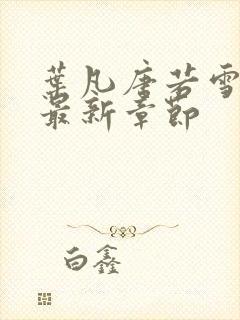 葉凡唐若雪
最新章節
白鑫